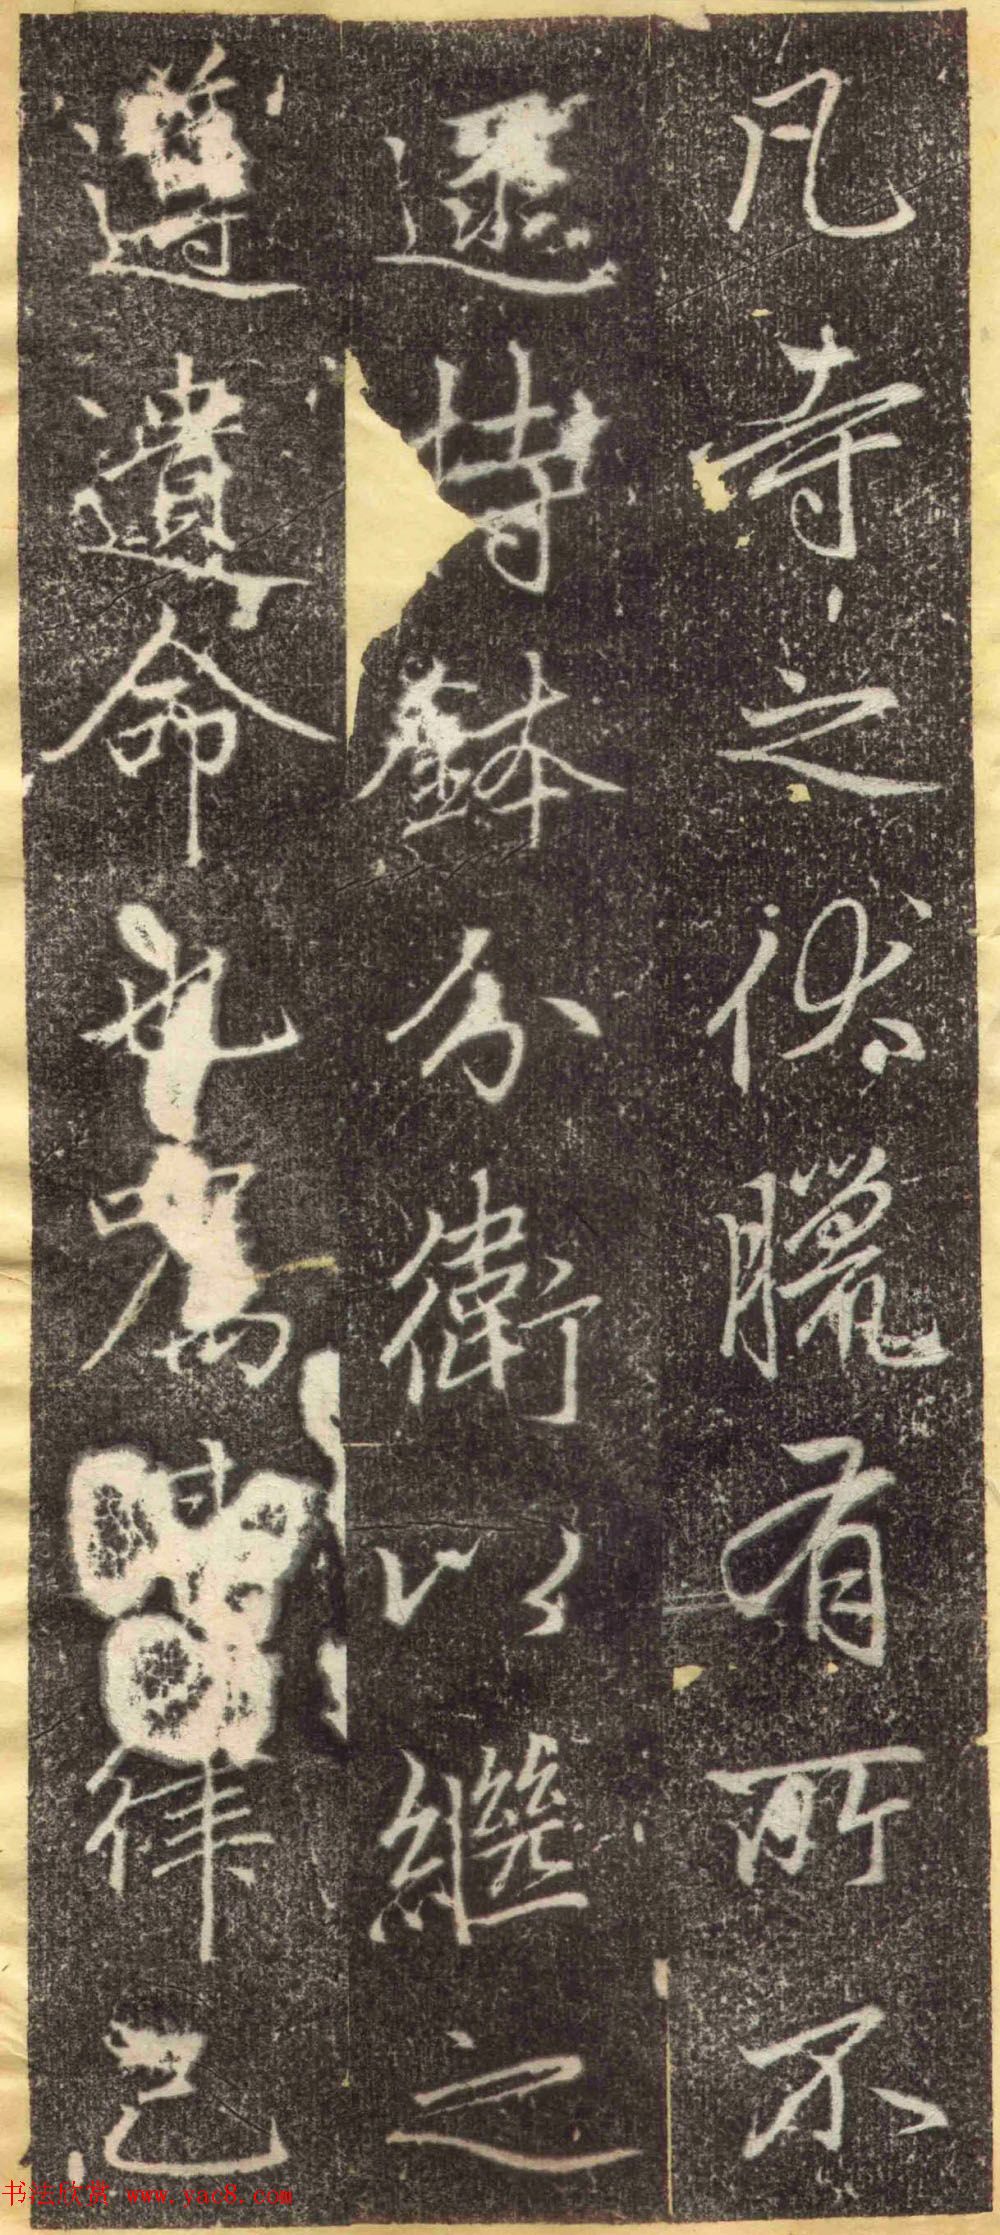 凡寺之伏臘有所不
逮持鉢分衛以繼之
遵遺命也焉
律己
书法欣赏 www.yac8.com